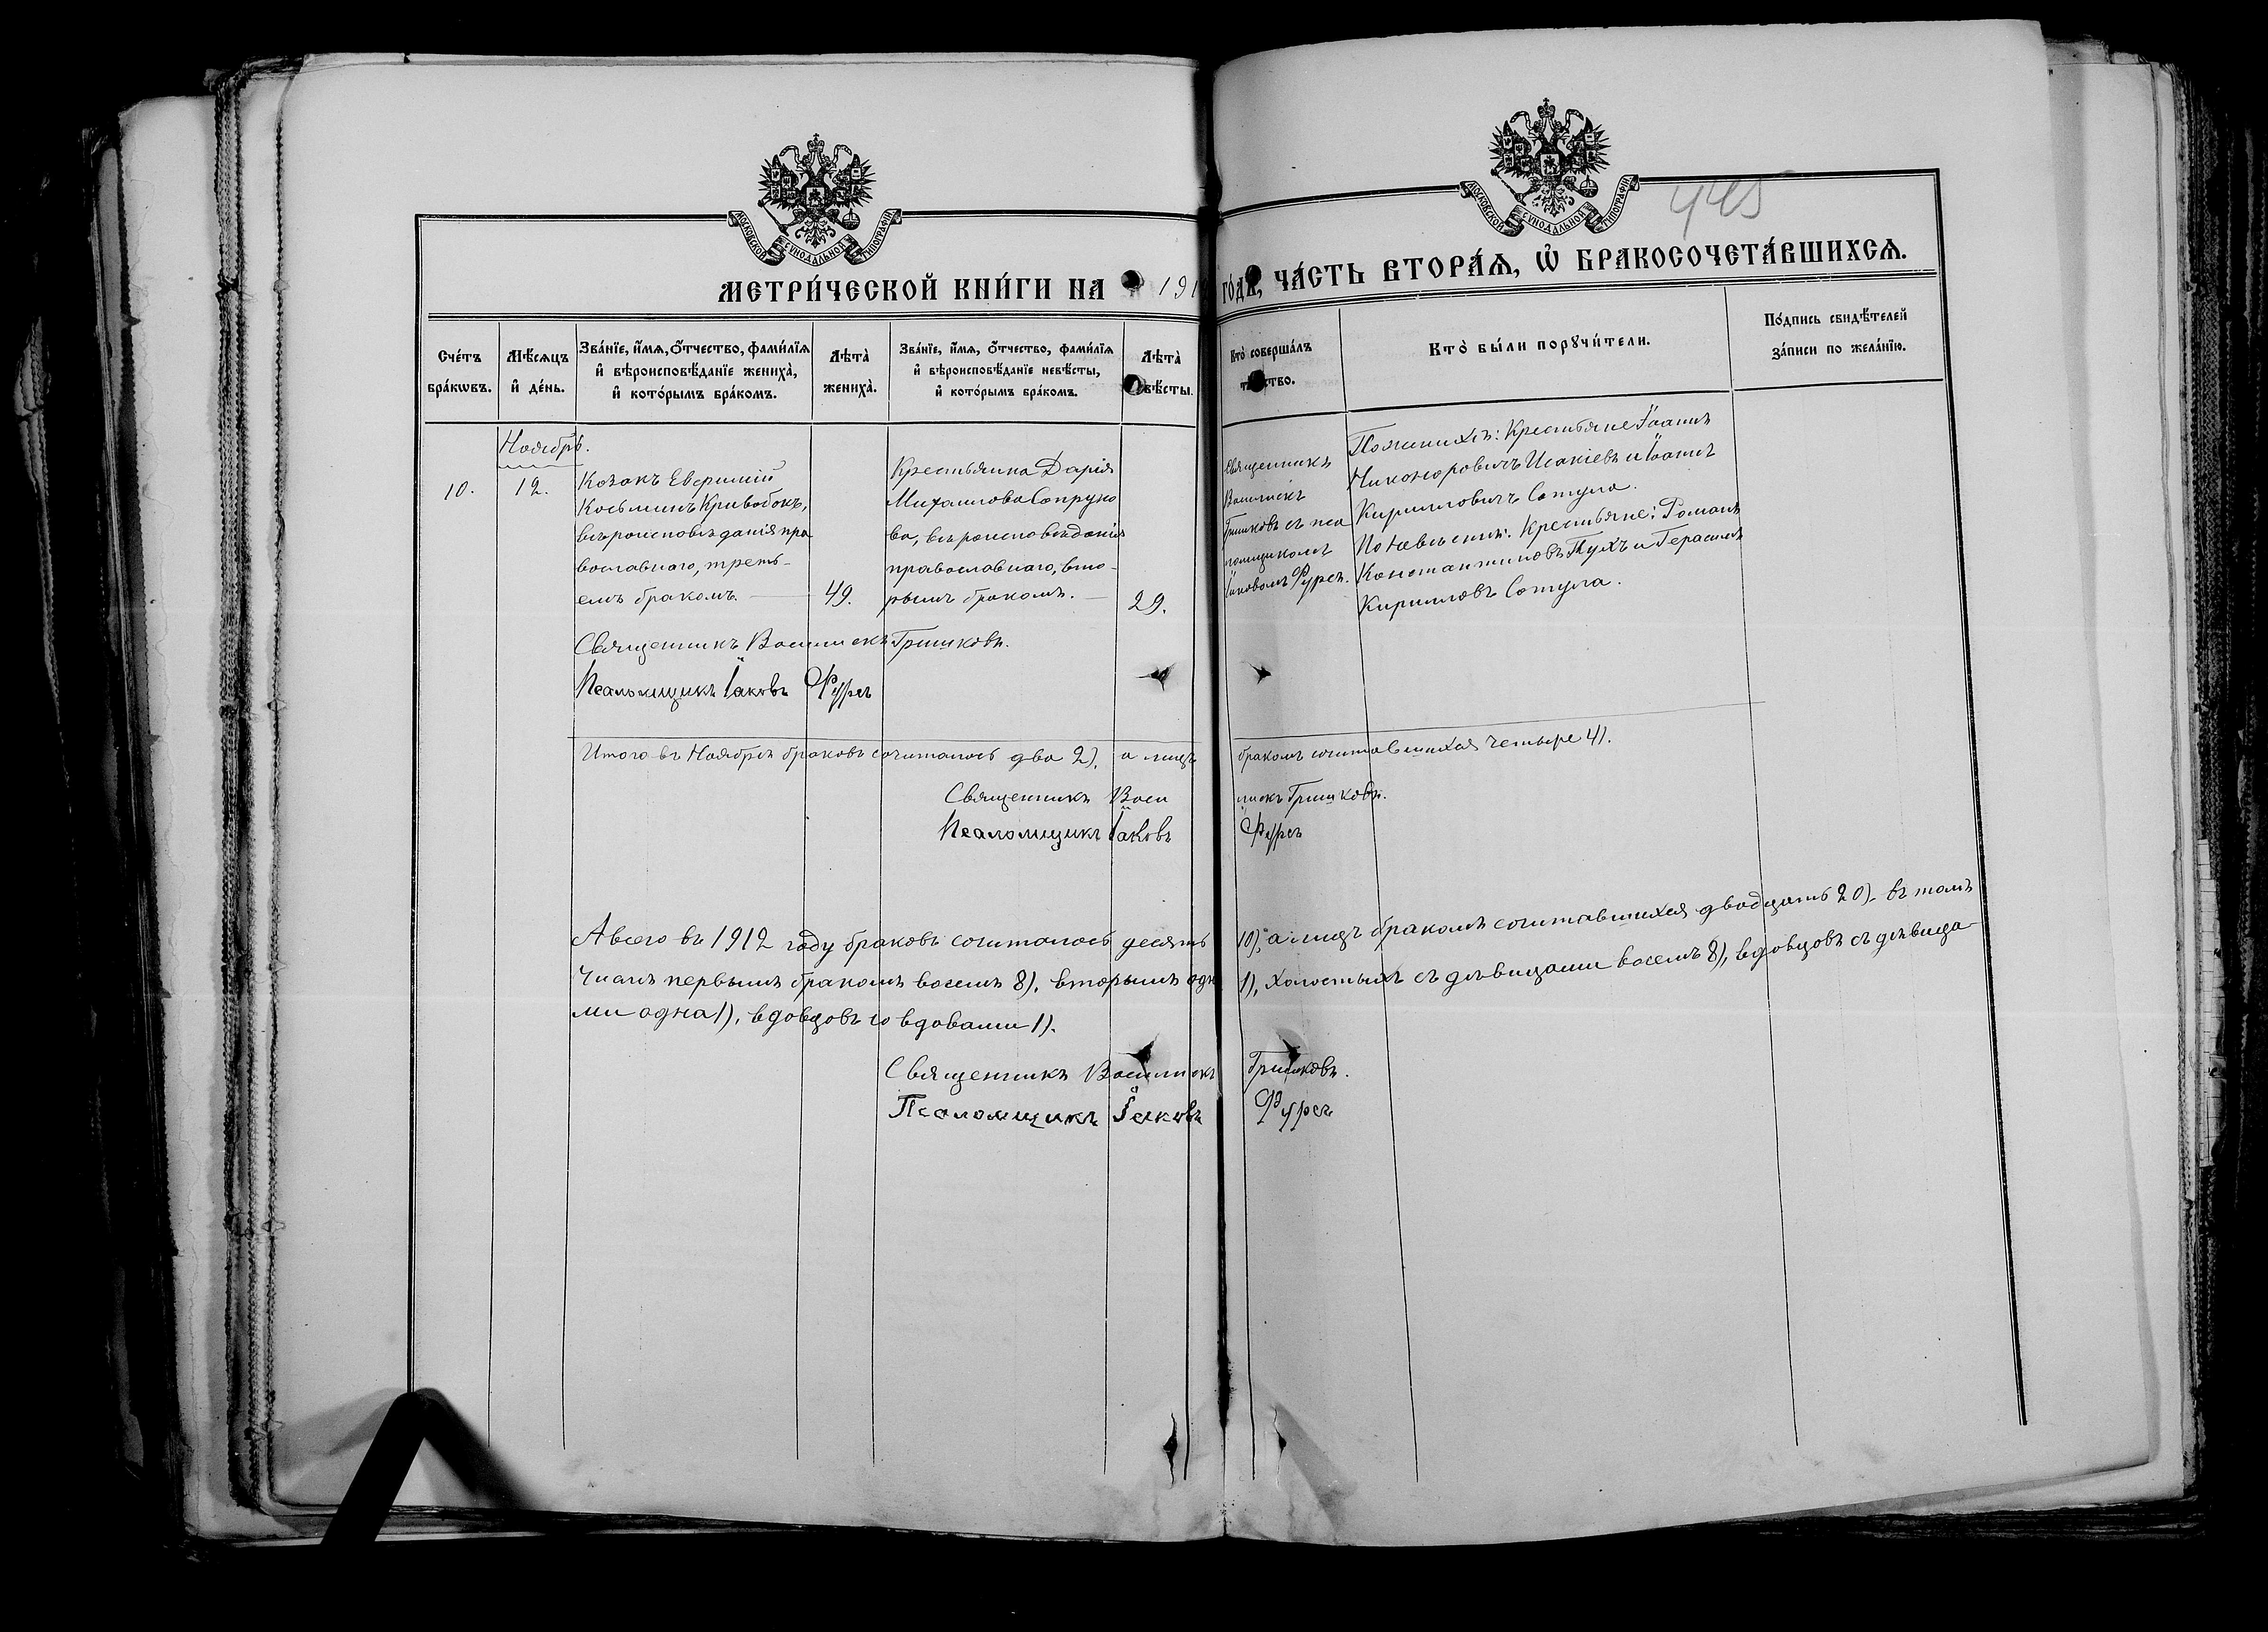 МОСКОВСКОЙ СѴНОДАЛЬНОЙ ТИПОГРАФІИ
МОСКОВСКОЙ СѴНОДАЛЬНОЙ ТИПОГРАФІИ
445
МЕТРИ́ЧЕСКОЙ КНИ́ГИ НА 191
го́дъ, ЧА́СТЬ ВТОРА́Ѧ, Ѽ БРАКОСОЧЕТА́ВШИХСѦ.
Сче́тъ
бра́кѡвъ.
Мѣ́сѧцъ
и҆ де́нь.
Зва́нїе, и҆́мѧ, ѻ҆́тчество, фами́лїѧ
и҆ вѣроисповѣ́данїе жениха̀,
и҆ кото́рымъ бра́комъ.
Лѣта̀
жениха̀.
Зва́нїе, и҆́мѧ, ѻ҆́тчество, фами́лїѧ
и҆ вѣроисповѣ́данїе невѣ́сты,
и҆ кото́рымъ бра́комъ.
Лѣта̀
вѣ́сты.
Кто̀ соверша́лъ
ство.
Кто̀ бы́ли порꙋчи́тели.
По́дпись свидѣ́телей
за́писи по жела́нїю.
Ноябрь.
10.
12.
Козакъ Евфимій
Косьминъ Кривобокъ,
вѣроисповѣданія пра
вославнаго, треть-
емъ бракомъ.
49.
Крестьянка Дарія
Михаилова Сапруно
ва, вѣроисповѣданія
православнаго, вто-
рымъ бракомъ.
29.
Священникъ
Василискъ
Гришковъ съ пса
ломщикомъ
Іаковомъ Фурсъ.
По женихѣ: Крестьяне Іоаннъ
Никаноровичъ Исакіевъ и Іоаннъ
Кирилловичъ Сотула.
По невѣстѣ: Крестьяне: Романъ
Константиновъ Пухъ и Герасимъ
Кирилловъ Сотула.
Священникъ Василискъ Гришковъ.
Псаломщикъ Іаковъ Фурсъ
Итого въ Ноябрѣ браковъ сочиталось два 2), а лицъ бракомъ сочитавшихся четыре 4).
Священникъ Васи лискъ Гришковъ.
Псаломщикъ Іаковъ Фурсъ
А всего въ 1912 году браковъ сочиталось десять 10), а лицъ бракомъ сочитавшихся двадцать 20). въ томъ
числѣ первымъ бракомъ восемь 8), вторымъ одн 1), холостыхъ съ дѣвицами восемь 8), вдовцовъ съ дѣвица-
ми одна 1), вдовцовъ со вдовами 1).
Священникъ Василискъ Гришковъ.
Псаломщикъ Іаковъ Фурсъ